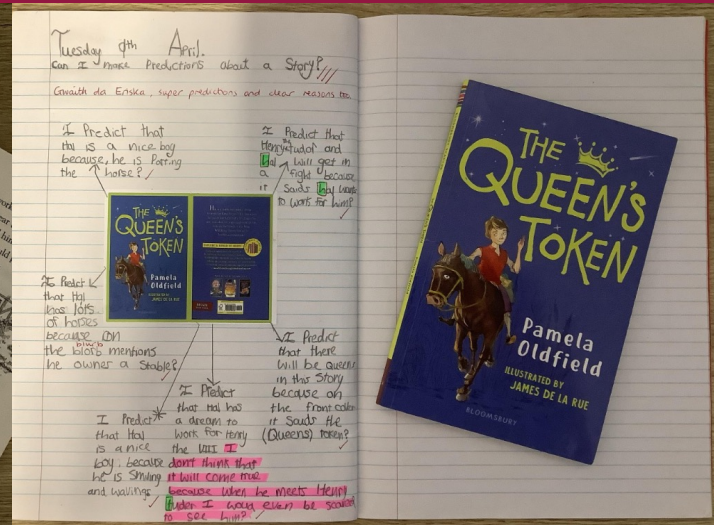 Tuesday 9th April.
Can I make Predictions about a Story?
Gwaith da Eriska, super predictions and clear reasons too
I Predict that
Hal is a nice boy
because, he is Patting
the horse?
I Predict that
Henry the tudor and
Hal will get in
a fight because
it saids hal wants
to work for him?
THE
QUEEN'S
TOKEN
Pamela
Oldfield
ILLUSTRATED BY
JAMES DE LA RUE
I Predict
that Hal
has lots
of horses
because on
the blorb mentions
blurb
he owner a Stable?
I Predict
that there
will be Queens
in this Story
because on
the front cover
it saids the
(Queens) token?
I Predict
that Hal has
a dream to
work for Henry
the VIII I
don't think that
it will come true
because when he meets Henry
tuder I woud even be scared
to see him?
I Predict
that Hal
is a nice
boy. because
he is Smiling
and wavings
THE
QUEEN'S
TOKEN
Pamela
Oldfield
ILLUSTRATED BY
JAMES DE LA RUE
BLOOMSBURY